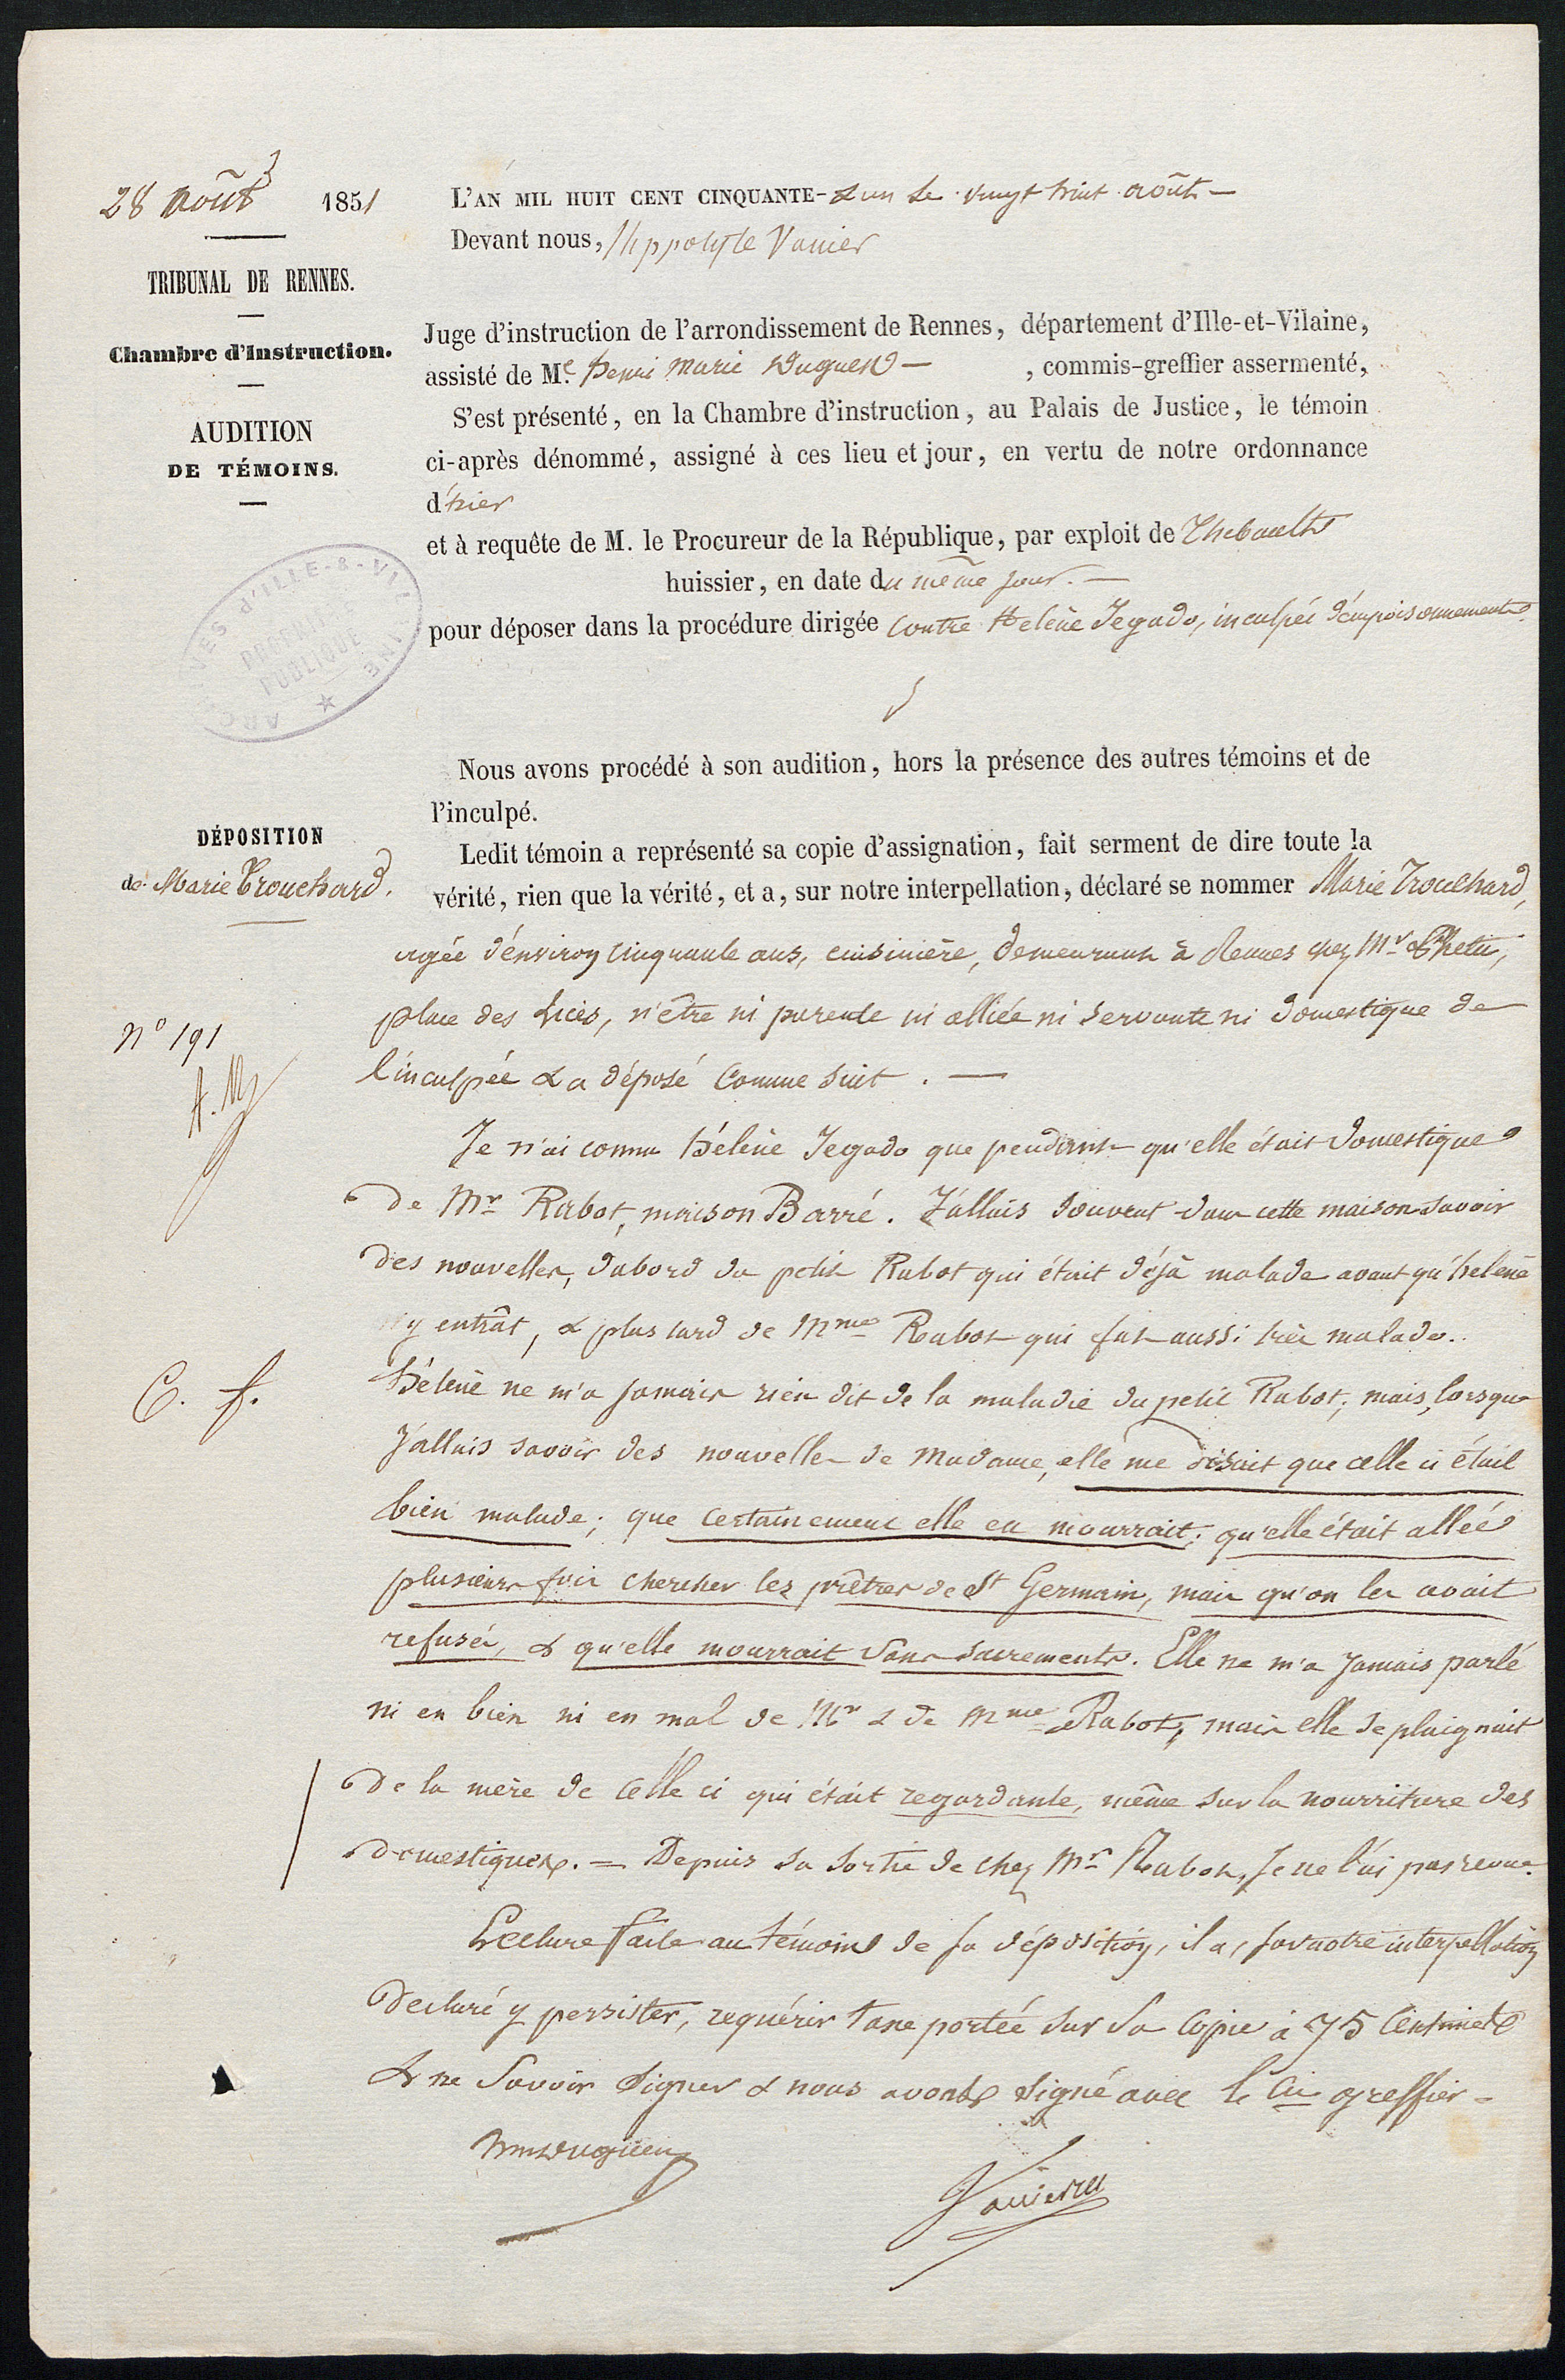 28 août 1851
TRIBUNAL DE RENNES.
Chambre d'Instruction.
AUDITION
DE TÉMOINS.
L'AN MIL HUIT CENT CINQUANTE-& un le vingt huit août
Devant nous, Hippolyte Vannier
Juge d'instruction de l'arrondissement de Rennes, département d'Ille-et-Vilaine,
assisté de Me. henri marie Duguen , commis-greffier assermenté,
S'est présenté, en la Chambre d'instruction, au Palais de Justice, le témoin
ci-après dénommé, assigné à ces lieu et jour, en vertu de notre ordonnance
d'hier
et à requête de M. le Procureur de la République, par exploit de Thebault
huissier, en date du même jour.
pour déposer dans la procédure dirigée contre Helène Jegado, inculpée d'empoisonnement
ARCHIVES D'ILLE-&-VILAINE
PROPRIÉTÉ
PUBLIQUE
Nous avons procédé à son audition, hors la présence des autres témoins et de
l'inculpé.
DÉPOSITION
de Marie Trouchard.
Ledit témoin a représenté sa copie d'assignation, fait serment de dire toute la
vérité, rien que la vérité, et a, sur notre interpellation, déclaré se nommer Marie Trouchard,
agée d'environ cinquante ans, cuisinière, demeurant à Rennes chez Mr
place des Lices, n'être ni parente ni alliée ni servante ni domestique de
n° 191
l'inculpée & a déposé comme suit.
Je n'ai connu hélène Jegado que pendant qu'elle était domestique
de Mr Rabot, maison Barré. J'allais souvent dans cette maison savoir
des nouvelles, d'abord du petit Rabot qui était déjà malade avant qu'helène
y entrât, & plus tard de Mme Rabot qui fut aussi très malade.
C. f.
hélène ne m'a jamais rien dit de la maladie du petit Rabot; mais, lorsque
j'allais savoir des nouvelles de Madame, elle me disait que celle ci était
bien malade; que certainement elle en mourrait; qu'elle était allée
plusieurs fois chercher les prêtres de St Germain, mais qu'on les avait
refusés, & qu'elle mourrait sans sacrements. Elle ne m'a jamais parlé
ni en bien ni en mal de Mr & de Mme Rabot, mais elle se plaignait
de la mère de celle ci qui était regardante, même sur la nourriture des
domestiques. = Depuis sa sortie de chez Mr Rabot, je ne l'ai pas revue.
Lecture faite au témoin de sa déposition, il a, sur notre interpellation
declaré y persister, requérir taxe portée sur sa copie à 75 centimes
& ne savoir signer & nous avons signé avec le Cis greffier =
hmduguen
Vannier